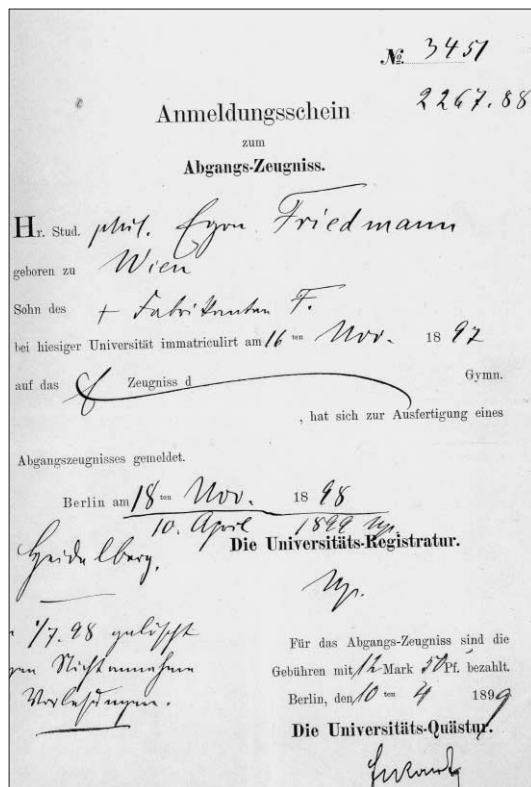 No. 3451
2267.88
Anmeldungsschein
zum
Abgangs-Zeugniss.
Hr. Stud. phil. Egon Friedmann
geboren zu Wien
Sohn des + Fabrikanten F.
bei hiesiger Universität immatriculirt am 16 ten Nov. 1897
auf das Zeugniss d Gymn.
, hat sich zur Ausfertigung eines
Abgangszeugnisses gemeldet.
Berlin am 18 ten Nov. 1898
10. April 1899
Die Universitäts-Registratur.
Heidelberg.
1/7.98 gelöscht
gen Nichtannahme
Vorlesungen.
Für das Abgangs-Zeugniss sind die
Gebühren mit 12 Mark 50 Pf. bezahlt.
Berlin, den 10 ten 4 1899
Die Universitäts-Quästur.